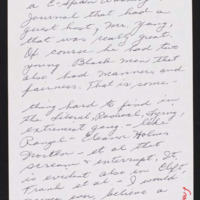 a C-Span Washing
Journal that had a
guest host, Mr. Yang,
that was really great.
Of course he had two
young Black men that
also had manners and
fairness. That is, some-
thing hard to find in
the Liberal, Radical, Lying,
extremist gang - like
Rangel - Eleanor Holmes
Norton - et al that
scream & interrupt. It
is evident also in
Frank et al - I would
never ever, believe a